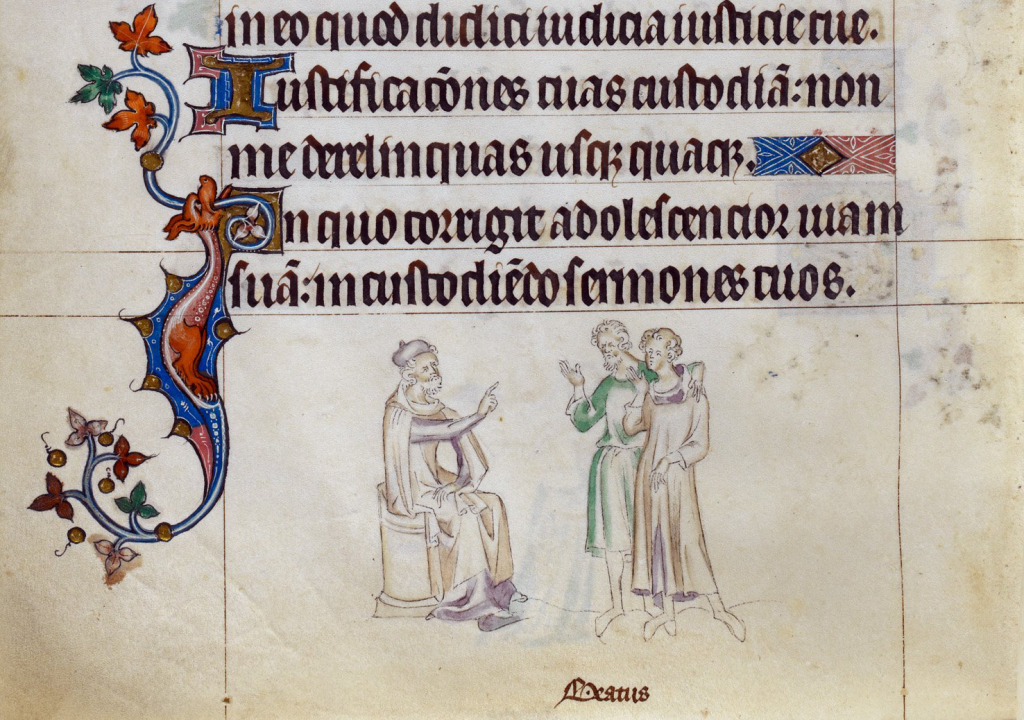 in eo quod didici iudicia iusticie tue.
Iustificacōnes tuas custodiā: non
me derelinquas usqꝫ quaqꝫ.
In quo corrigit adolescencior uiam
suā: in custodiēdo sermones tuos.